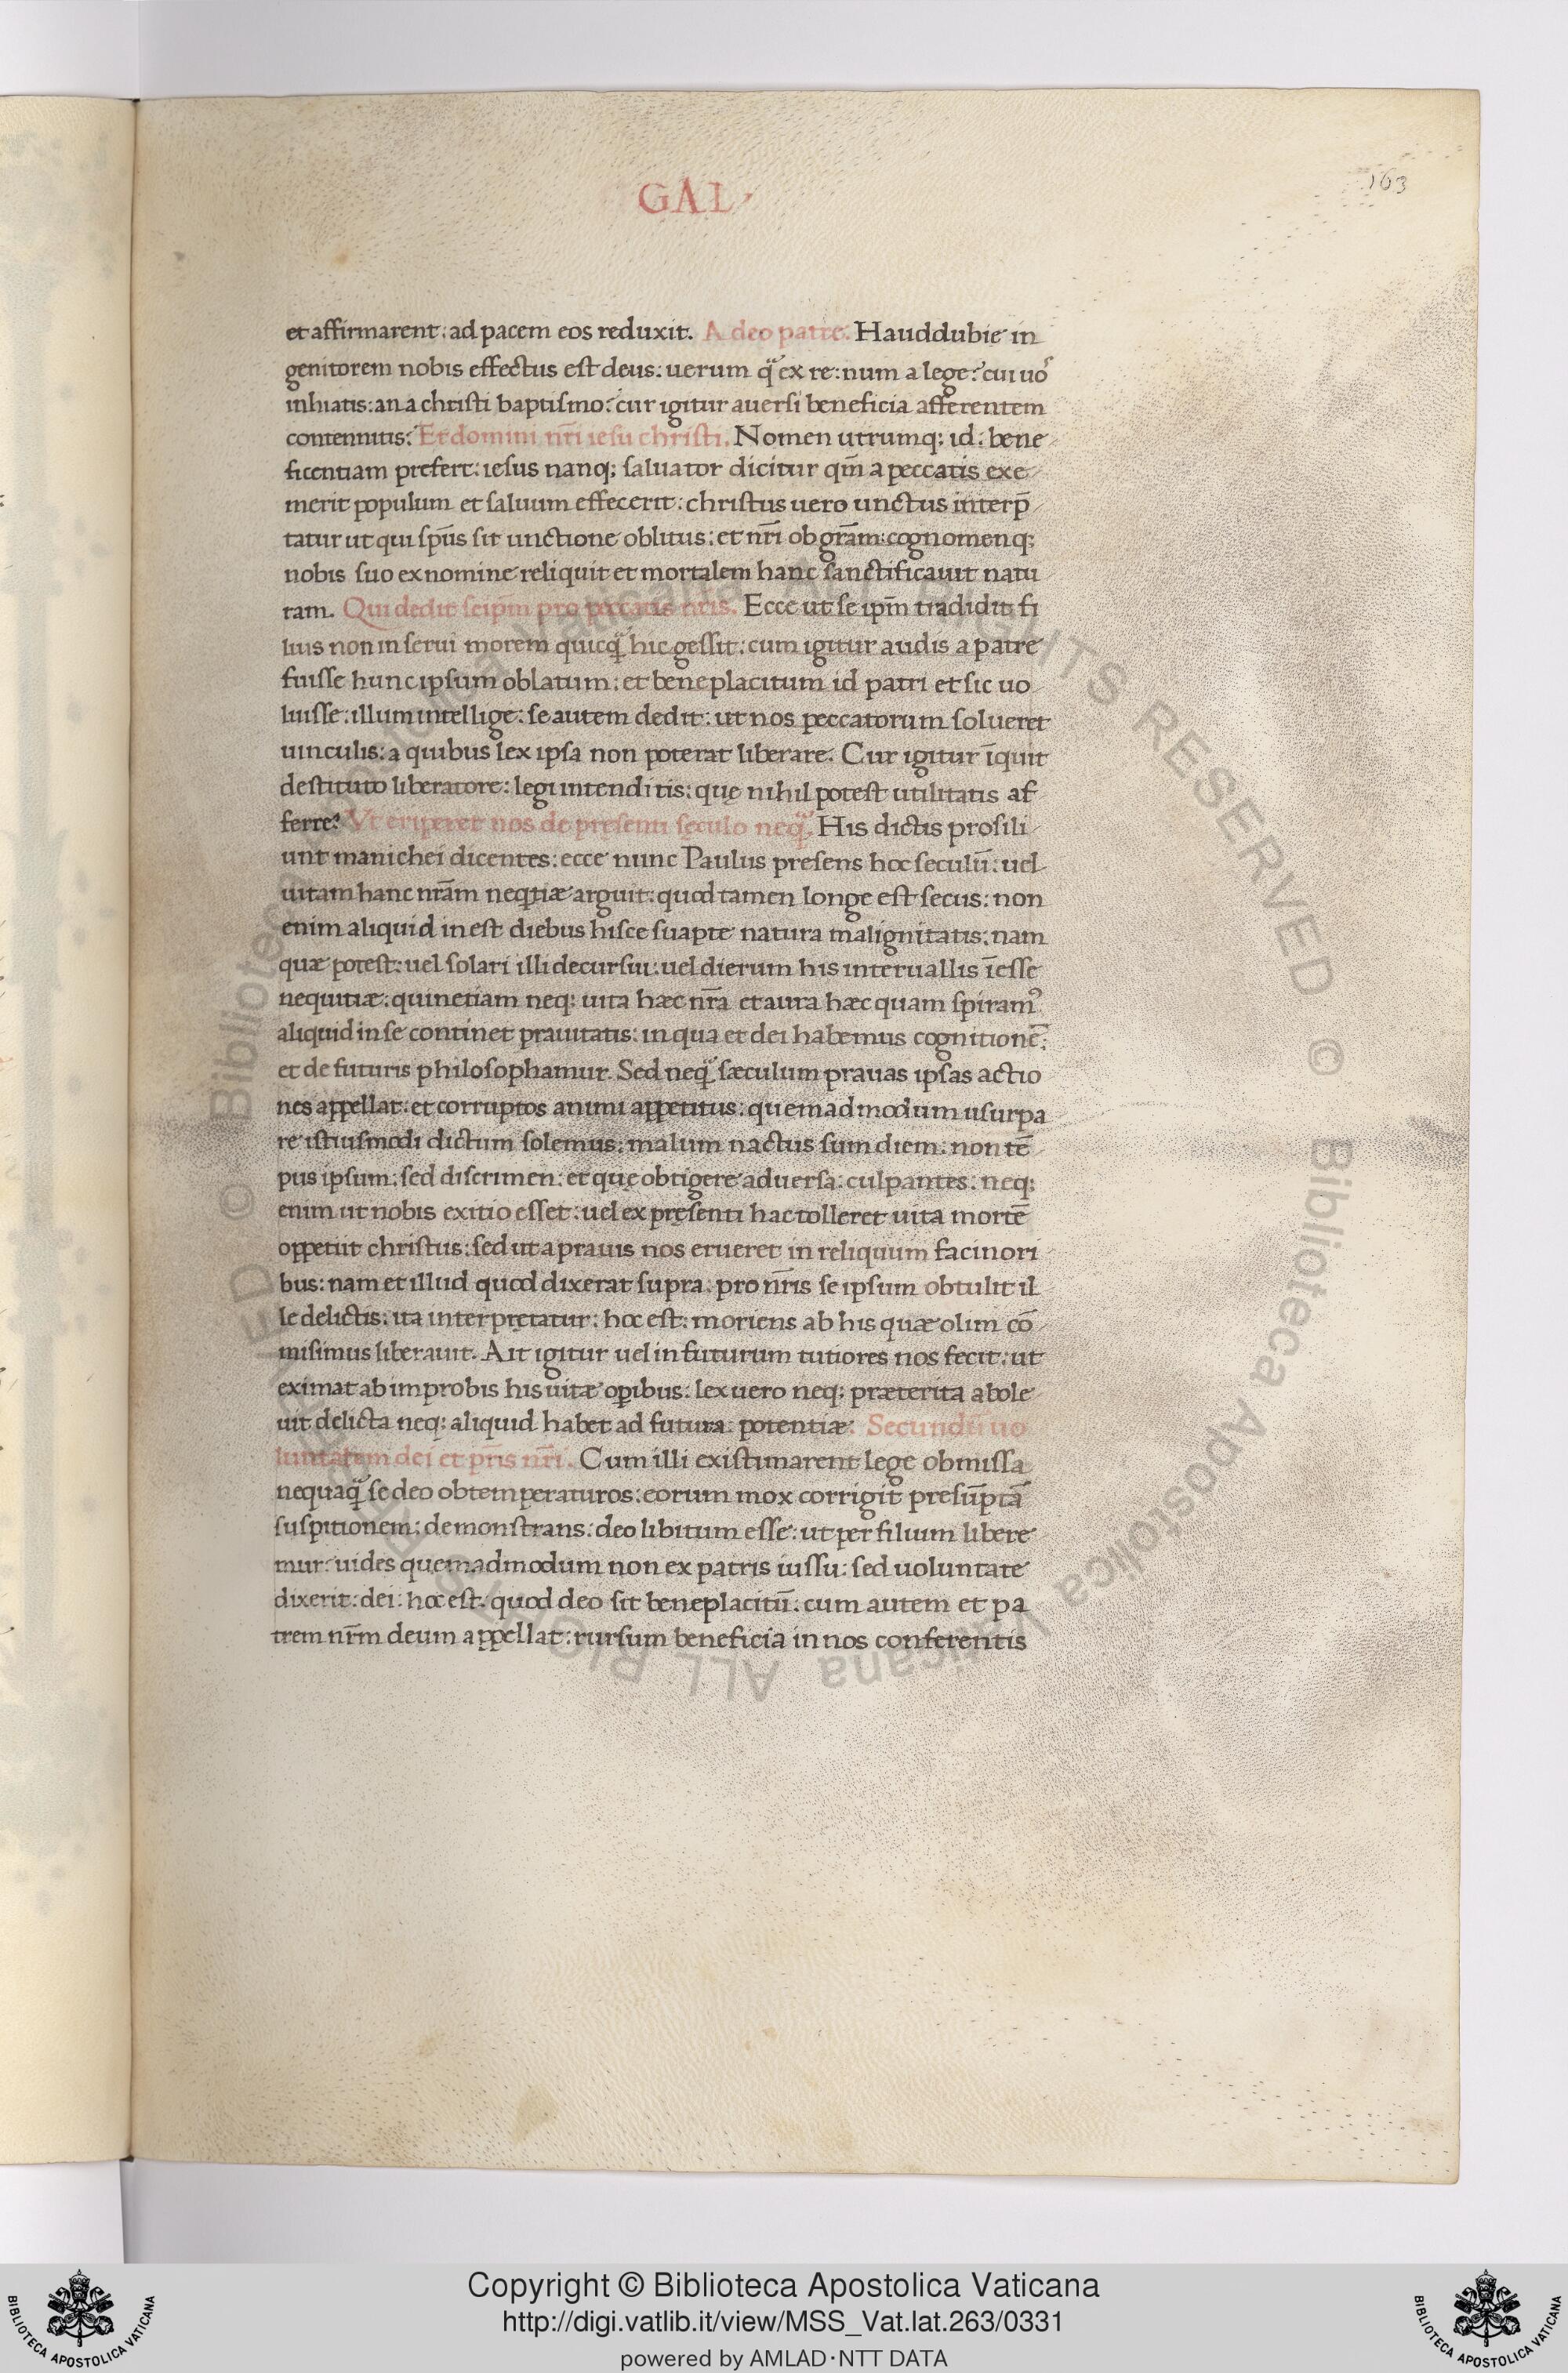 GAL·
163
et affirmarent: ad pacem eos reduxit. A deo patre. Haud dubie in
genitorem nobis effectus est deus: uerum qͣ ex re: num a lege? cui uo
inhiatis: an a christi baptismo? cur igitur auersi beneficia afferentem
contemnitis? Et domini nr̄i iesu christi. Nomen utrumq; id: bene
ficentiam prefert: iesus nanq; saluator dicitur qm̄ a peccatis exe
merit populum et saluum effecerit: christus uero unctus interp̄
tatur ut qui sp̄us sit unctione oblitus: et nr̄i ob gr̄am: cognomenq;
nobis suo ex nomine reliquit et mortalem hanc sanctificauit natu
ram. Qui dedit seipm̄ pro peccatis nr̄is. Ecce ut se ipm̄ tradidit fi
lius non in serui morem quicqͣ hic gessit: cum igitur audis a patre
fuisse hunc ipsum oblatum: et beneplacitum id patri et sic uo
luisse: illum intellige: se autem dedit: ut nos peccatorum solueret
uinculis: a quibus lex ipsa non poterat liberare. Cur igitur īquit
destituto liberatore: legi intenditis: que nihil potest utilitatis af
ferre? Vt eriperet nos de presenti seculo neqͣ. His dictis prosili
unt manichei dicentes: ecce nunc Paulus presens hoc seculū: uel
uitam hanc nr̄am neqtiæ arguit: quod tamen longe est secus: non
enim aliquid inest diebus hisce suapte natura malignitatis: nam
quæ potest: uel solari illi decursui: uel dierum his interuallis īesse
nequitiæ: quinetiam neq; uita hæc nr̄a et aura hæc quam spiram᾽
aliquid in se continet prauitatis: in qua et dei habemus cognitionē:
et de futuris philosophamur. Sed neqͣ sæculum prauas ipsas actio
nes appellat: et corruptos animi appetitus: quemadmodum usurpa
re istiusmodi dictum solemus: malum nactus sum diem: non tē
pus ipsum: sed discrimen: et quę obtigere aduersa: culpantes: neq;
enim ut nobis exitio esset: uel ex pręsenti hac tolleret uita mortē
oppetiit christus: sed ut a prauis nos erueret in reliquum facinori
bus: nam et illud quod dixerat supra: pro nr̄is se ipsum obtulit il
le delictis: ita interpretatur: hoc est: moriens ab his quæ olim cō
misimus liberauit. Ait igitur uel in futurum tutiores nos fecit: ut
eximat ab improbis his uitæ op̱ibus: lex uero neq; præterita abole
uit delicta neq; aliquid habet ad futura potentiæ. Secundū uo
luntatem dei et pr̄is nr̄i. Cum illi existimarent lege obmissa
nequaqͣ se deo obtemperaturos: eorum mox corrigit presūptā
suspitionem: demonstrans: deo libitum esse: ut per filium libere
mur: uides quemadmodum non ex patris iussu: sed uoluntate
dixerit: dei: hoc est: quod deo sit beneplacitū: cum autem et pa
trem nr̄m deum appellat: rursum beneficia in nos conferentis
Copyright © Biblioteca Apostolica Vaticana
http://digi.vatlib.it/view/MSS_Vat.lat.263/0331
powered by AMLAD·NTT DATA